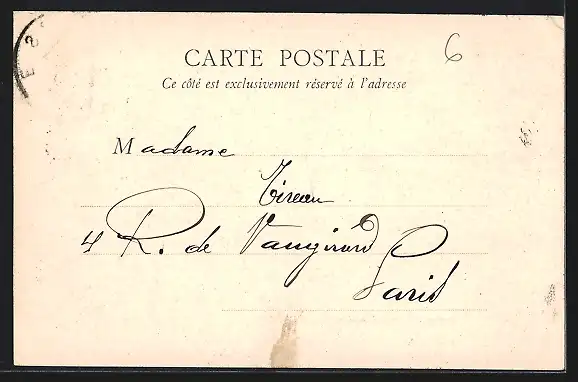 6
CARTE POSTALE
Ce côté est exclusivement réservé à l'adresse
Madame
4 R. de Vaugirard
Paris